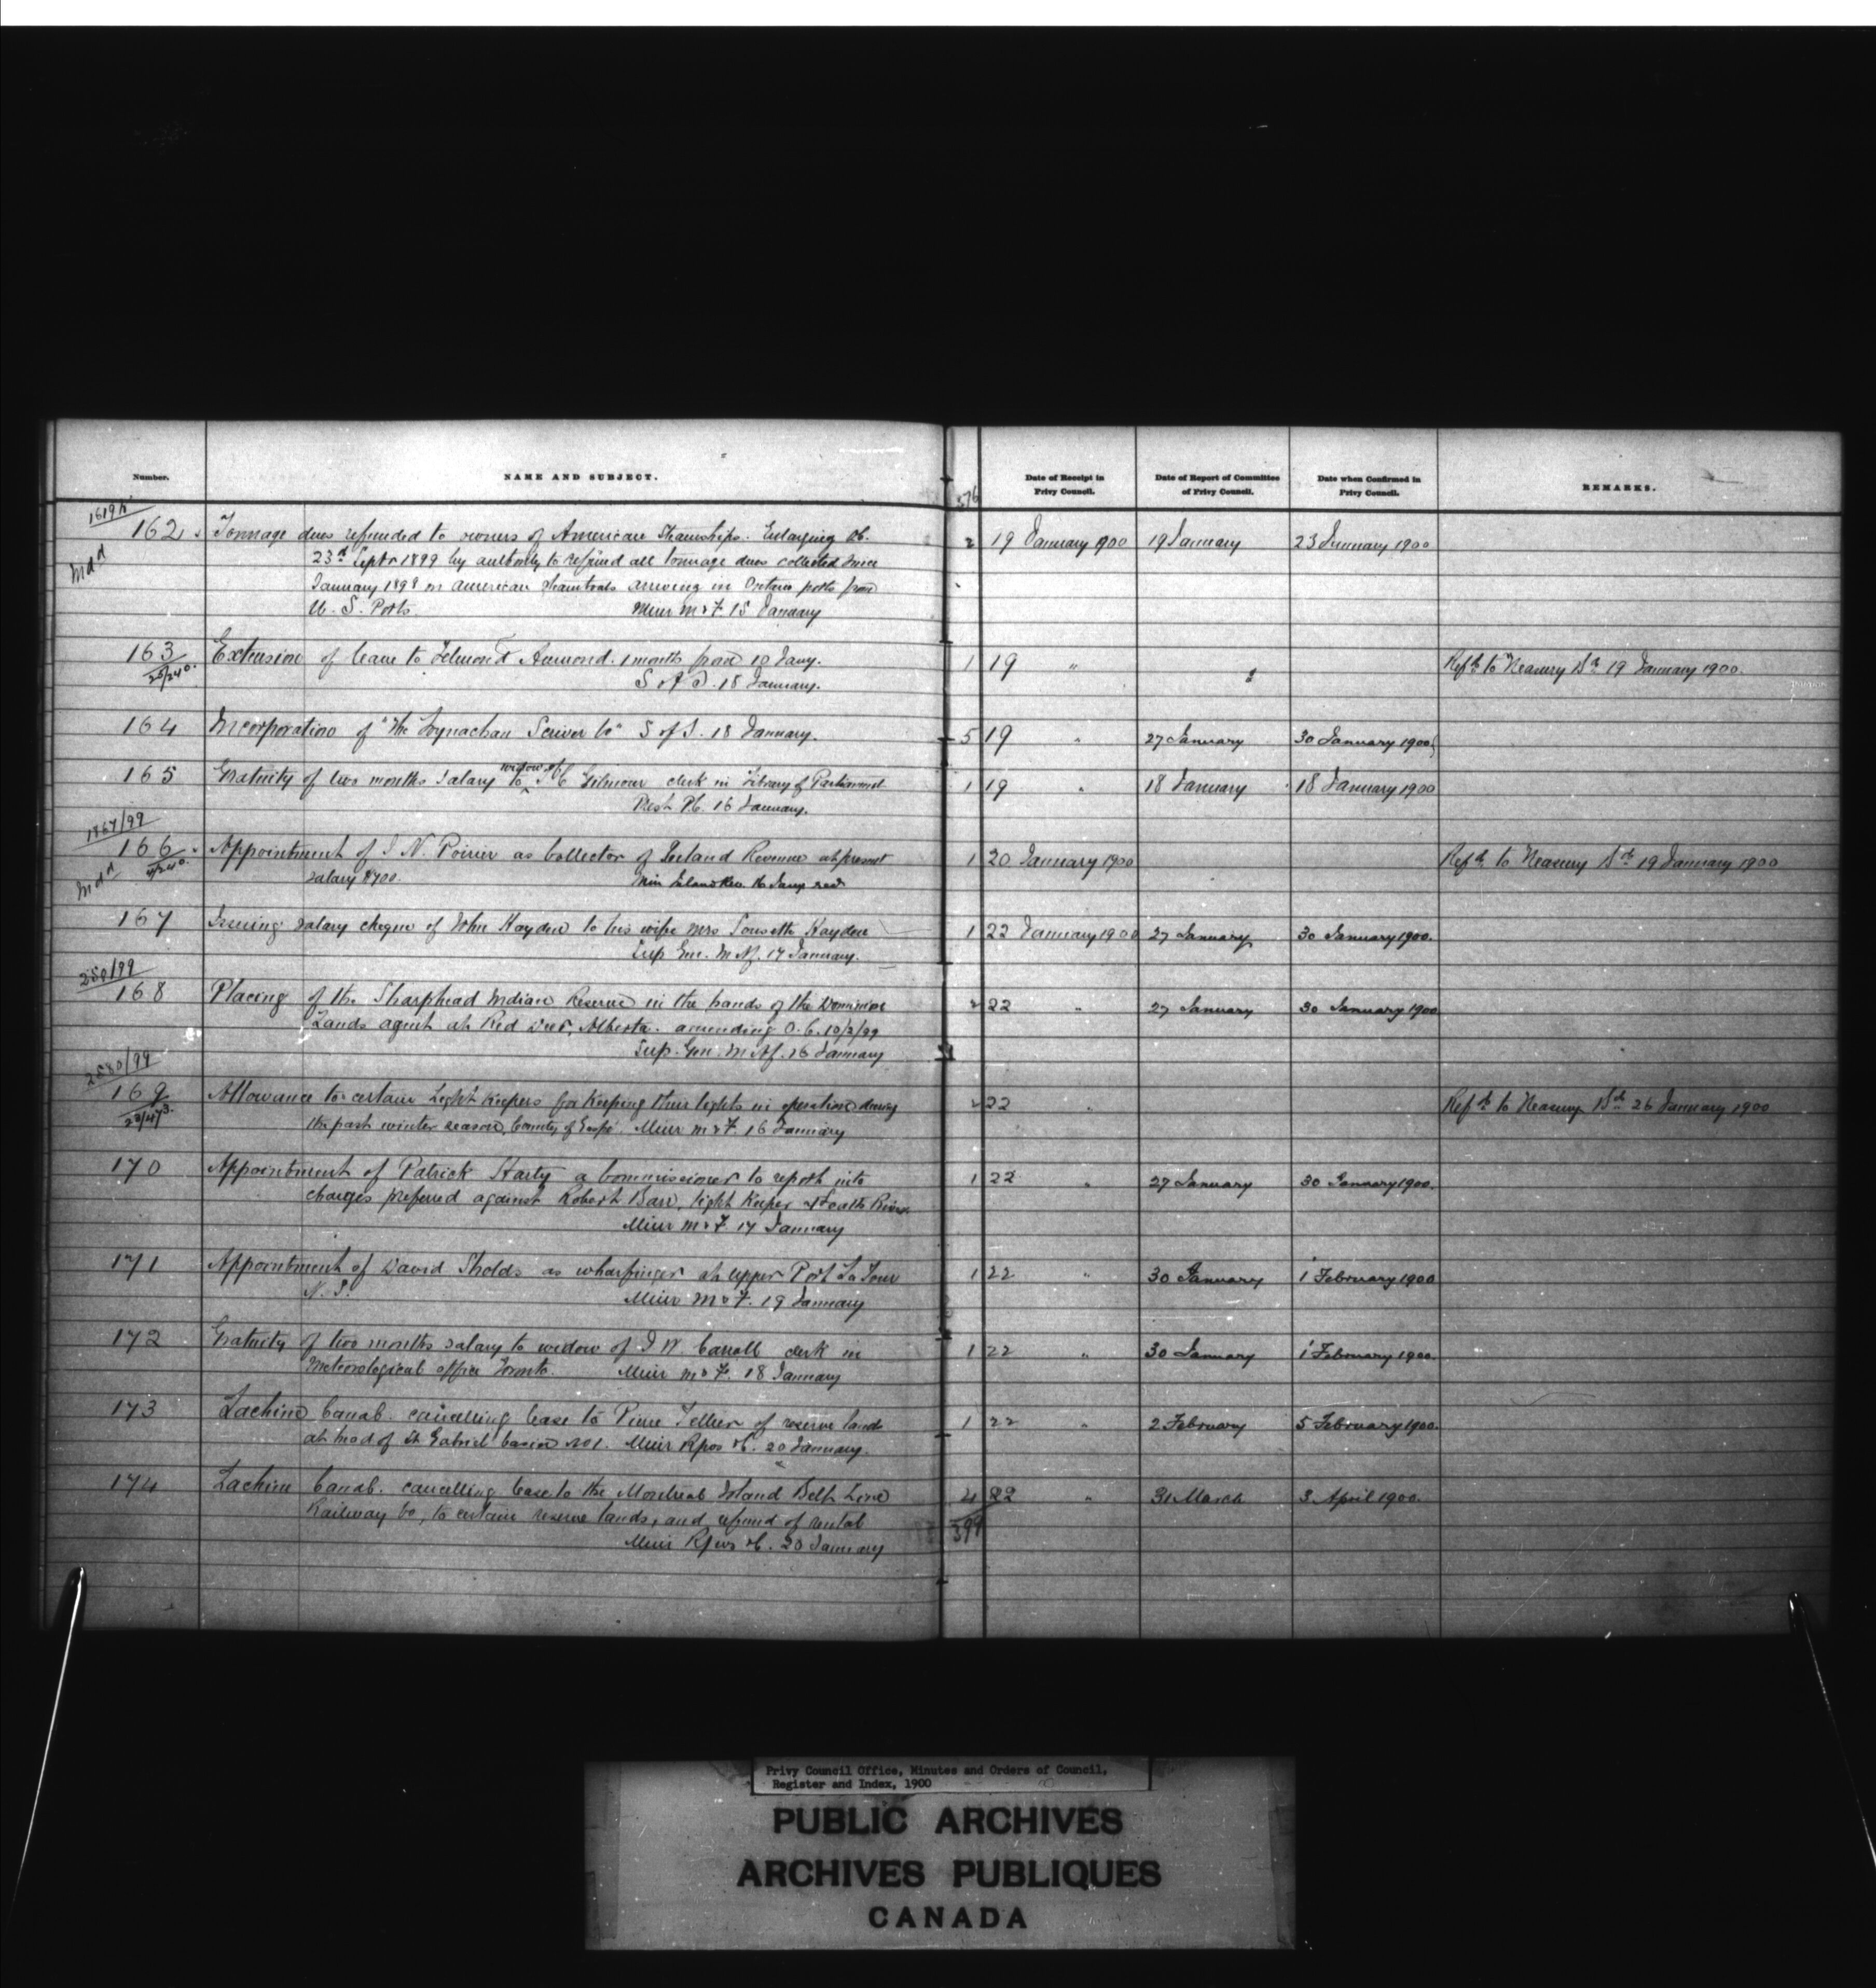 Number.
NAME AND SUBJECT.
Date of Receipt in Privy Council.
Date of Report of Committee of Privy Council.
Date when Confirmed in Privy Council.
REMARKS.
376
162 Tonnage dues refunded to owners of American Steamships. Enlarging OC. 2 19 January 1900 19 January 23 January 1900
23rd Septr 1899 by authority to refund all tonnage dues collected since
January 1898 on American steamers arriving in Ontario ports from
U. S. Ports. Minr M & F. 15 January
163 Extension of leave to Telmond Aumond. 1 months from 10 Jany. 1 19 " Refd to Treasury Bd 19 January 1900.
25/240. S of S. 18 January.
164 Incorporation of "The Scriver Co" S of S. 18 January. 5 19 " 27 January 30 January 1900
165 Gratuity of two months salary to widow of Gilmour clerk in Library of Parliament 1 19 " 18 January 18 January 1900
Prest PC. 16 January.
1867/99
166 Appointment of J N. Poirier as Collector of Inland Revenue at present 1 20 January 1900 Refd to Treasury Bd 19 January 1900
salary $700. Min Inland Rev. 16 Jany
167 Issuing salary cheque of John Hayden to his wife Mrs Hayden 1 22 January 1900 27 January 30 January 1900.
Sup Gen. I. Af. 17 January.
250/99
168 Placing of the Sharphead Indian Reserve in the hands of the Dominion 2 22 " 27 January 30 January 1900
Lands agent at Red Deer, Alberta. amending O. C. 10/2/99
Sup. Gen. In Af. 16 January
2580/99
169 Allowance to certain Light Keepers for keeping their lights in operation during 2 22 " Refd to Treasury Bd 26 January 1900
the past winter season, County of Gaspé. Minr M & F. 16 January
170 Appointment of Patrick Harty a Commissioner to report into 1 22 " 27 January 30 January 1900.
charges preferred against Robert Barr, light keeper at River
Minr M & F. 17 January
171 Appointment of David Sholds as wharfinger at upper Port La Tour 1 22 " 30 January 1 February 1900
N. S. Minr M & F. 19 January
172 Gratuity of two months salary to widow of J W Carroll clerk in 1 22 " 30 January 1 February 1900.
Meteorological office Toronto. Minr M & F. 18 January
173 Lachine Canal. cancelling lease to Pierre Tellier of reserve lands 1 22 " 2 February 5 February 1900.
at head of St Gabriel basin No 1. Minr Rlwys & C. 20 January.
174 Lachine Canal. cancelling lease to the Montreal Island Belt Line 4 22 " 31 March 3 April 1900.
Railway Co, to certain reserve lands, and refund of rental
399
Minr Rlwys & C. 20 January
Privy Council Office, Minutes and Orders of Council,
Register and Index, 1900
PUBLIC ARCHIVES
ARCHIVES PUBLIQUES
CANADA